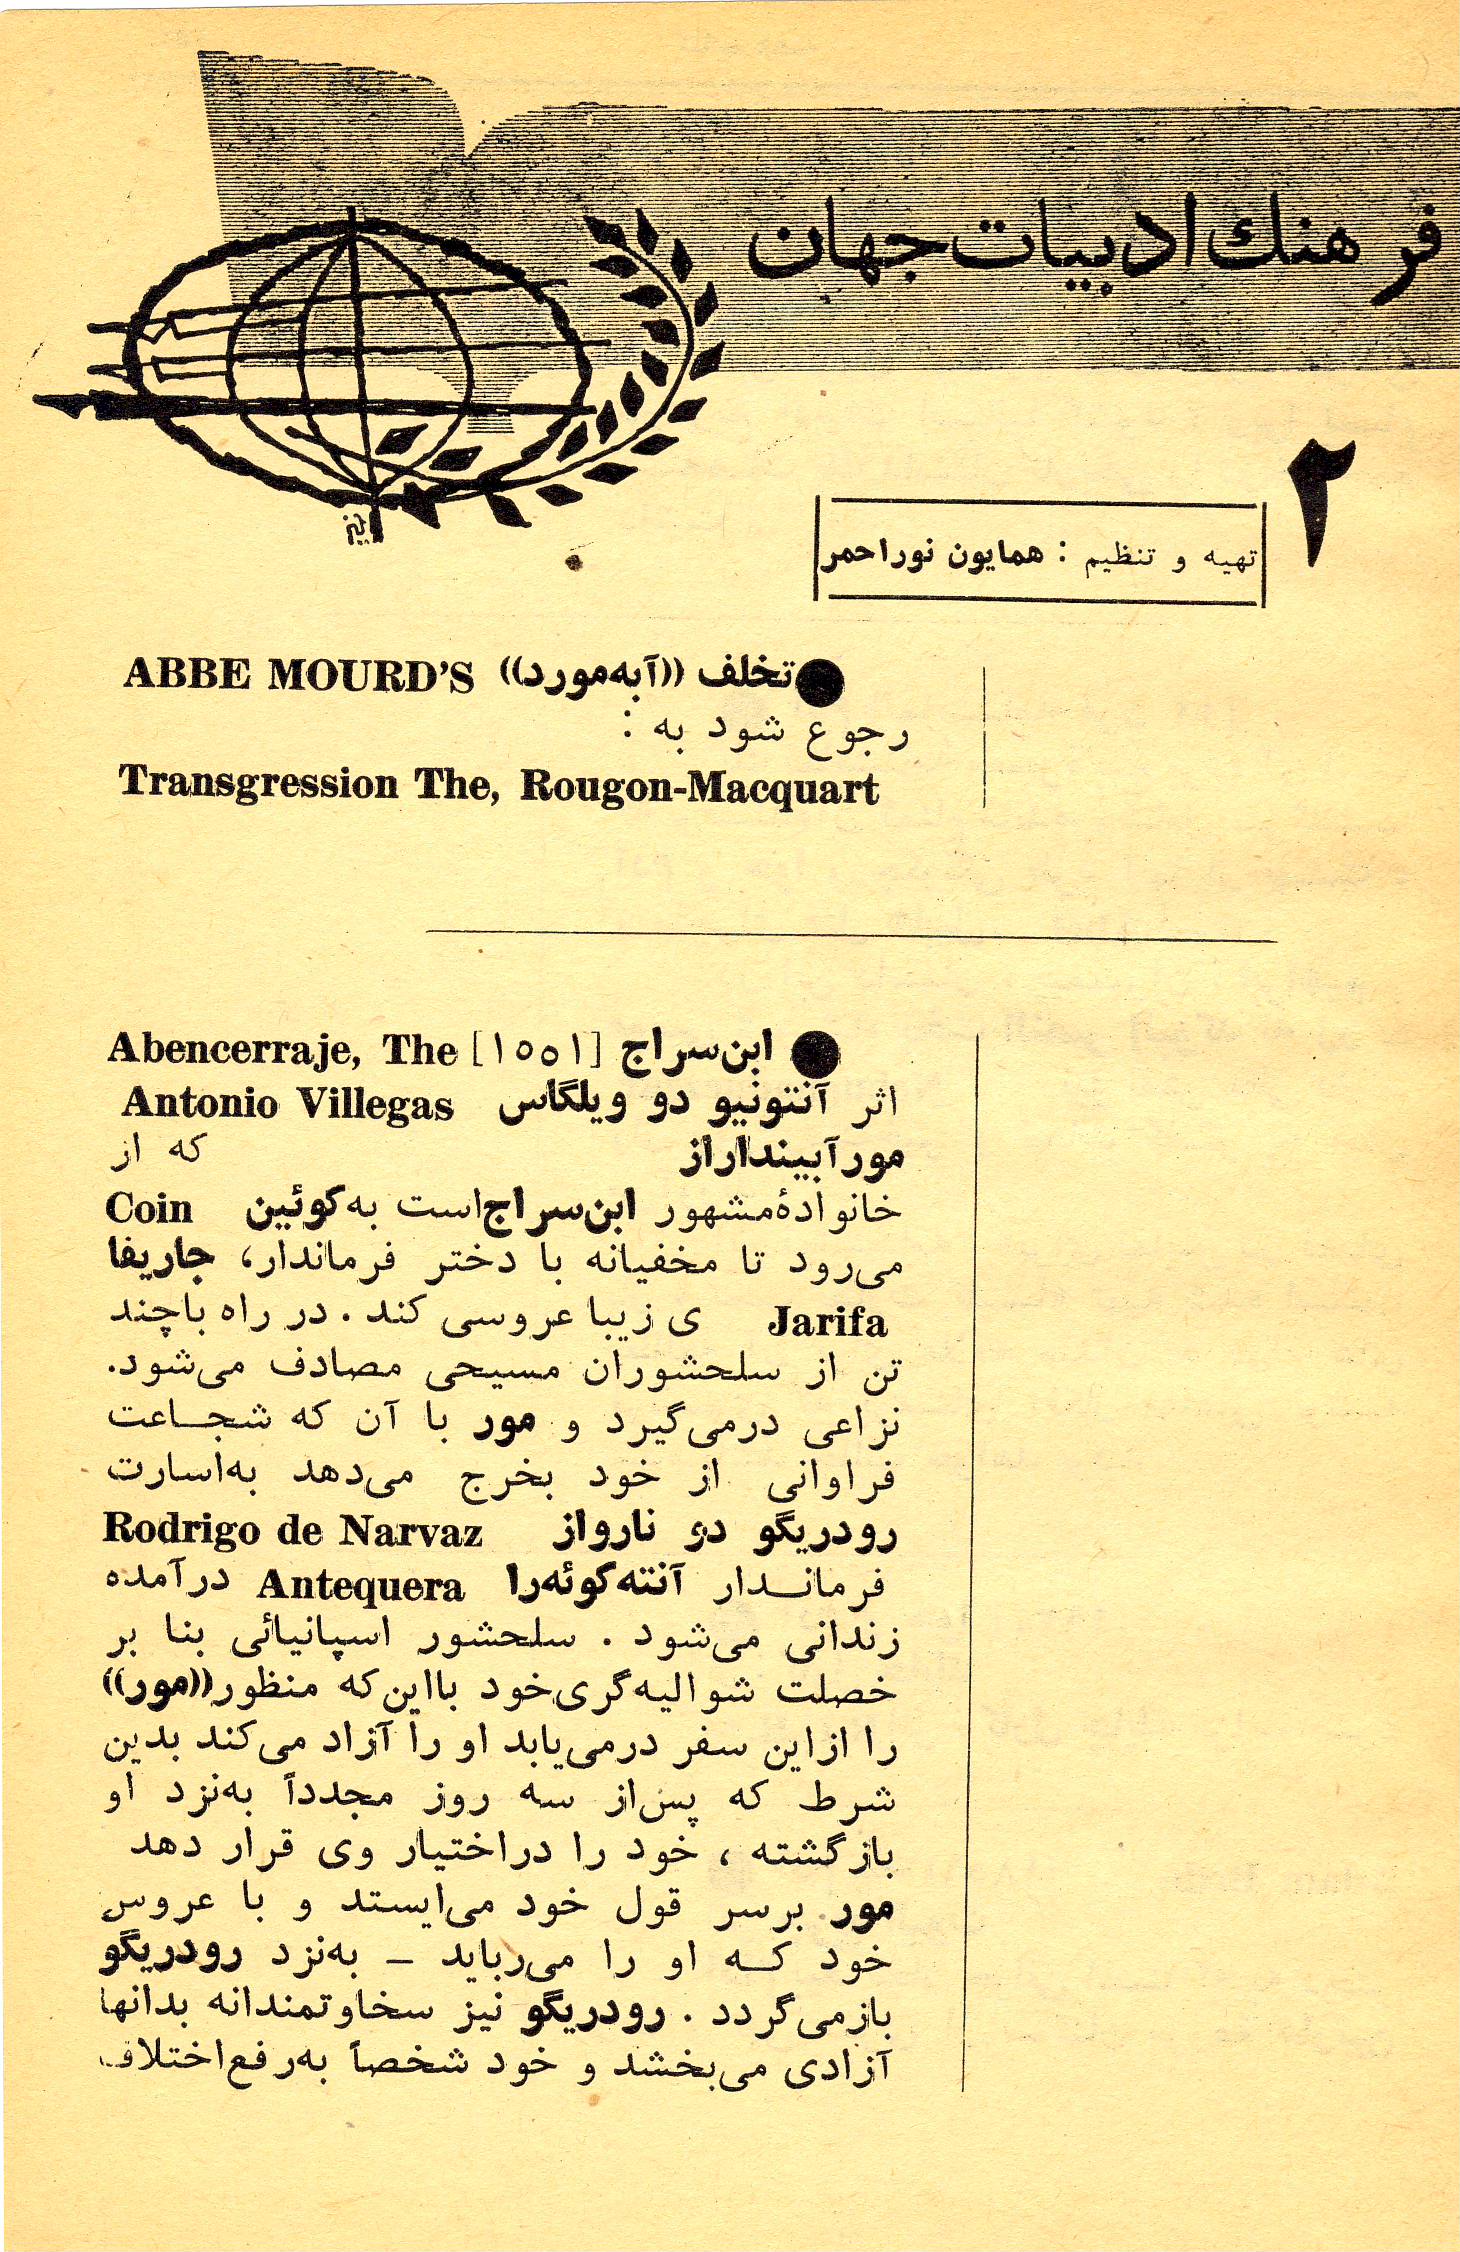 فرهنك ادبیات جهان
۲
تهیه و تنظیم : همایون نوراحمر
●تخلف ((آبه‌مورد)) ABBE MOURD'S
رجوع شود به :
Transgression The, Rougon-Macquart
● ابن‌سراج [۱۵۵۱] Abencerraje, The
اثر آنتونیو دو ویلگاس Antonio Villegas
مورآبینداراز که از
خانوادهٔ‌مشهور ابن‌سراج‌است به‌کوئین Coin
می‌رود تا مخفیانه با دختر فرماندار، جاریفا
Jarifa ی زیبا عروسی کند . در راه باچند
تن از سلحشوران مسیحی مصادف می‌شود.
نزاعی درمی‌گیرد و مور با آن که شجاعت
فراوانی از خود بخرج می‌دهد به‌اسارت
رودریگو دو نارواز Rodrigo de Narvaz
فرماندار آنته‌کوئه‌را Antequera درآمده
زندانی می‌شود . سلحشور اسپانیائی بنا بر
خصلت شوالیه‌گری‌خود بااین‌که منظور((مور))
را ازاین سفر درمی‌یابد او را آزاد می‌کند بدین
شرط که پس‌از سه روز مجدداً به‌نزد او
بازگشته ، خود را دراختیار وی قرار دهد
مور برسر قول خود می‌ایستد و با عروس
خود که او را می‌رباید – به‌نزد رودریگو
بازمی‌گردد . رودریگو نیز سخاوتمندانه بدانها
آزادی می‌بخشد و خود شخصاً به‌رفع‌اختلاف